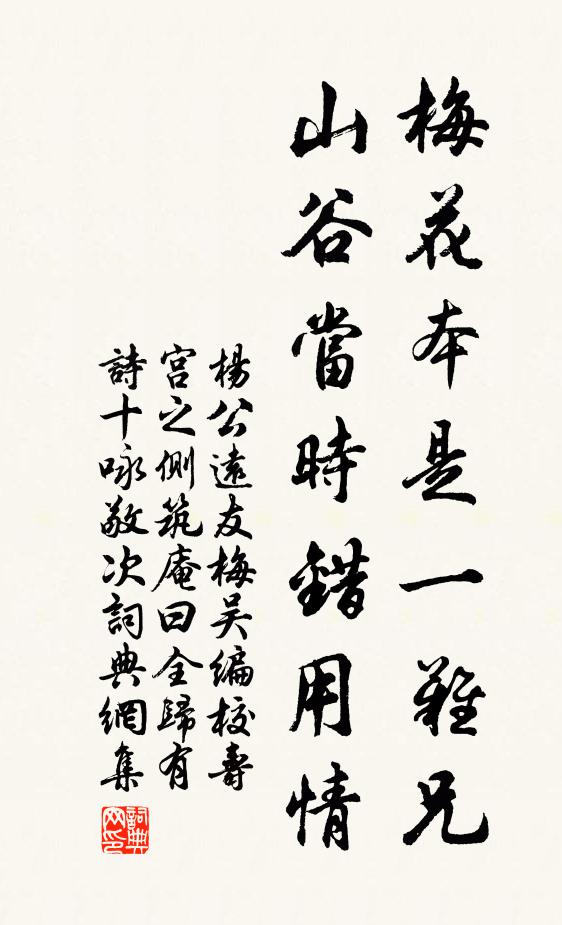 梅花本是一難兄
山谷當時錯用情
楊公遠友梅吴編校壽
宫之側筑庵曰全歸有
詩十咏敬次詞典網集
詞典网印